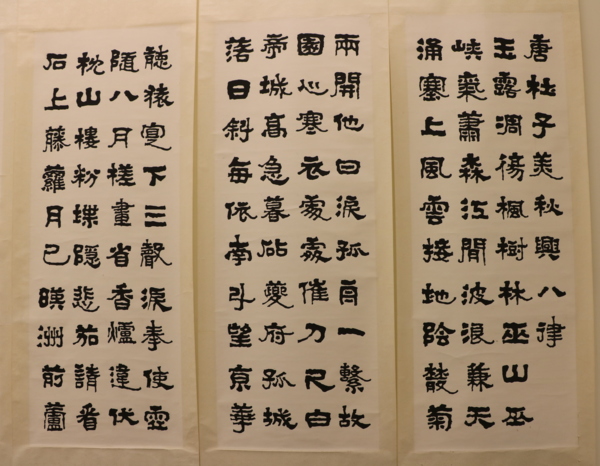 唐杜子美秋興八律
玉露凋傷楓樹林巫山巫
峽氣蕭森江閒波浪兼天
涌塞上風雲接地陰叢菊
兩開他日淚孤舟一繫故
園心寒衣處處催刀尺白
帝城高急暮砧夔府孤城
落日斜每依南斗望京華
聽猿寔下三聲淚奉使虛
隨八月槎畫省香爐違伏
枕山樓粉堞隱悲笳請看
石上藤蘿月已暎洲前蘆